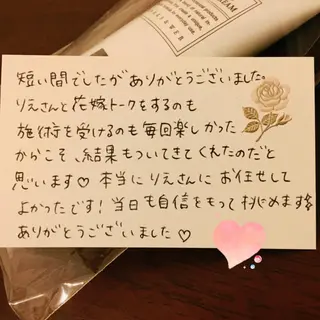 CREAM
短い間でしたがありがとうございました。
りえさんと花嫁トークをするのも
施術を受けるのも毎回楽しかった
からこそ、結果もついてきてくれたのだと
思います♡ 本当にりえさんに お任せして
よかったです! 当日も自信をもって挑めます
ありがとうございました♡